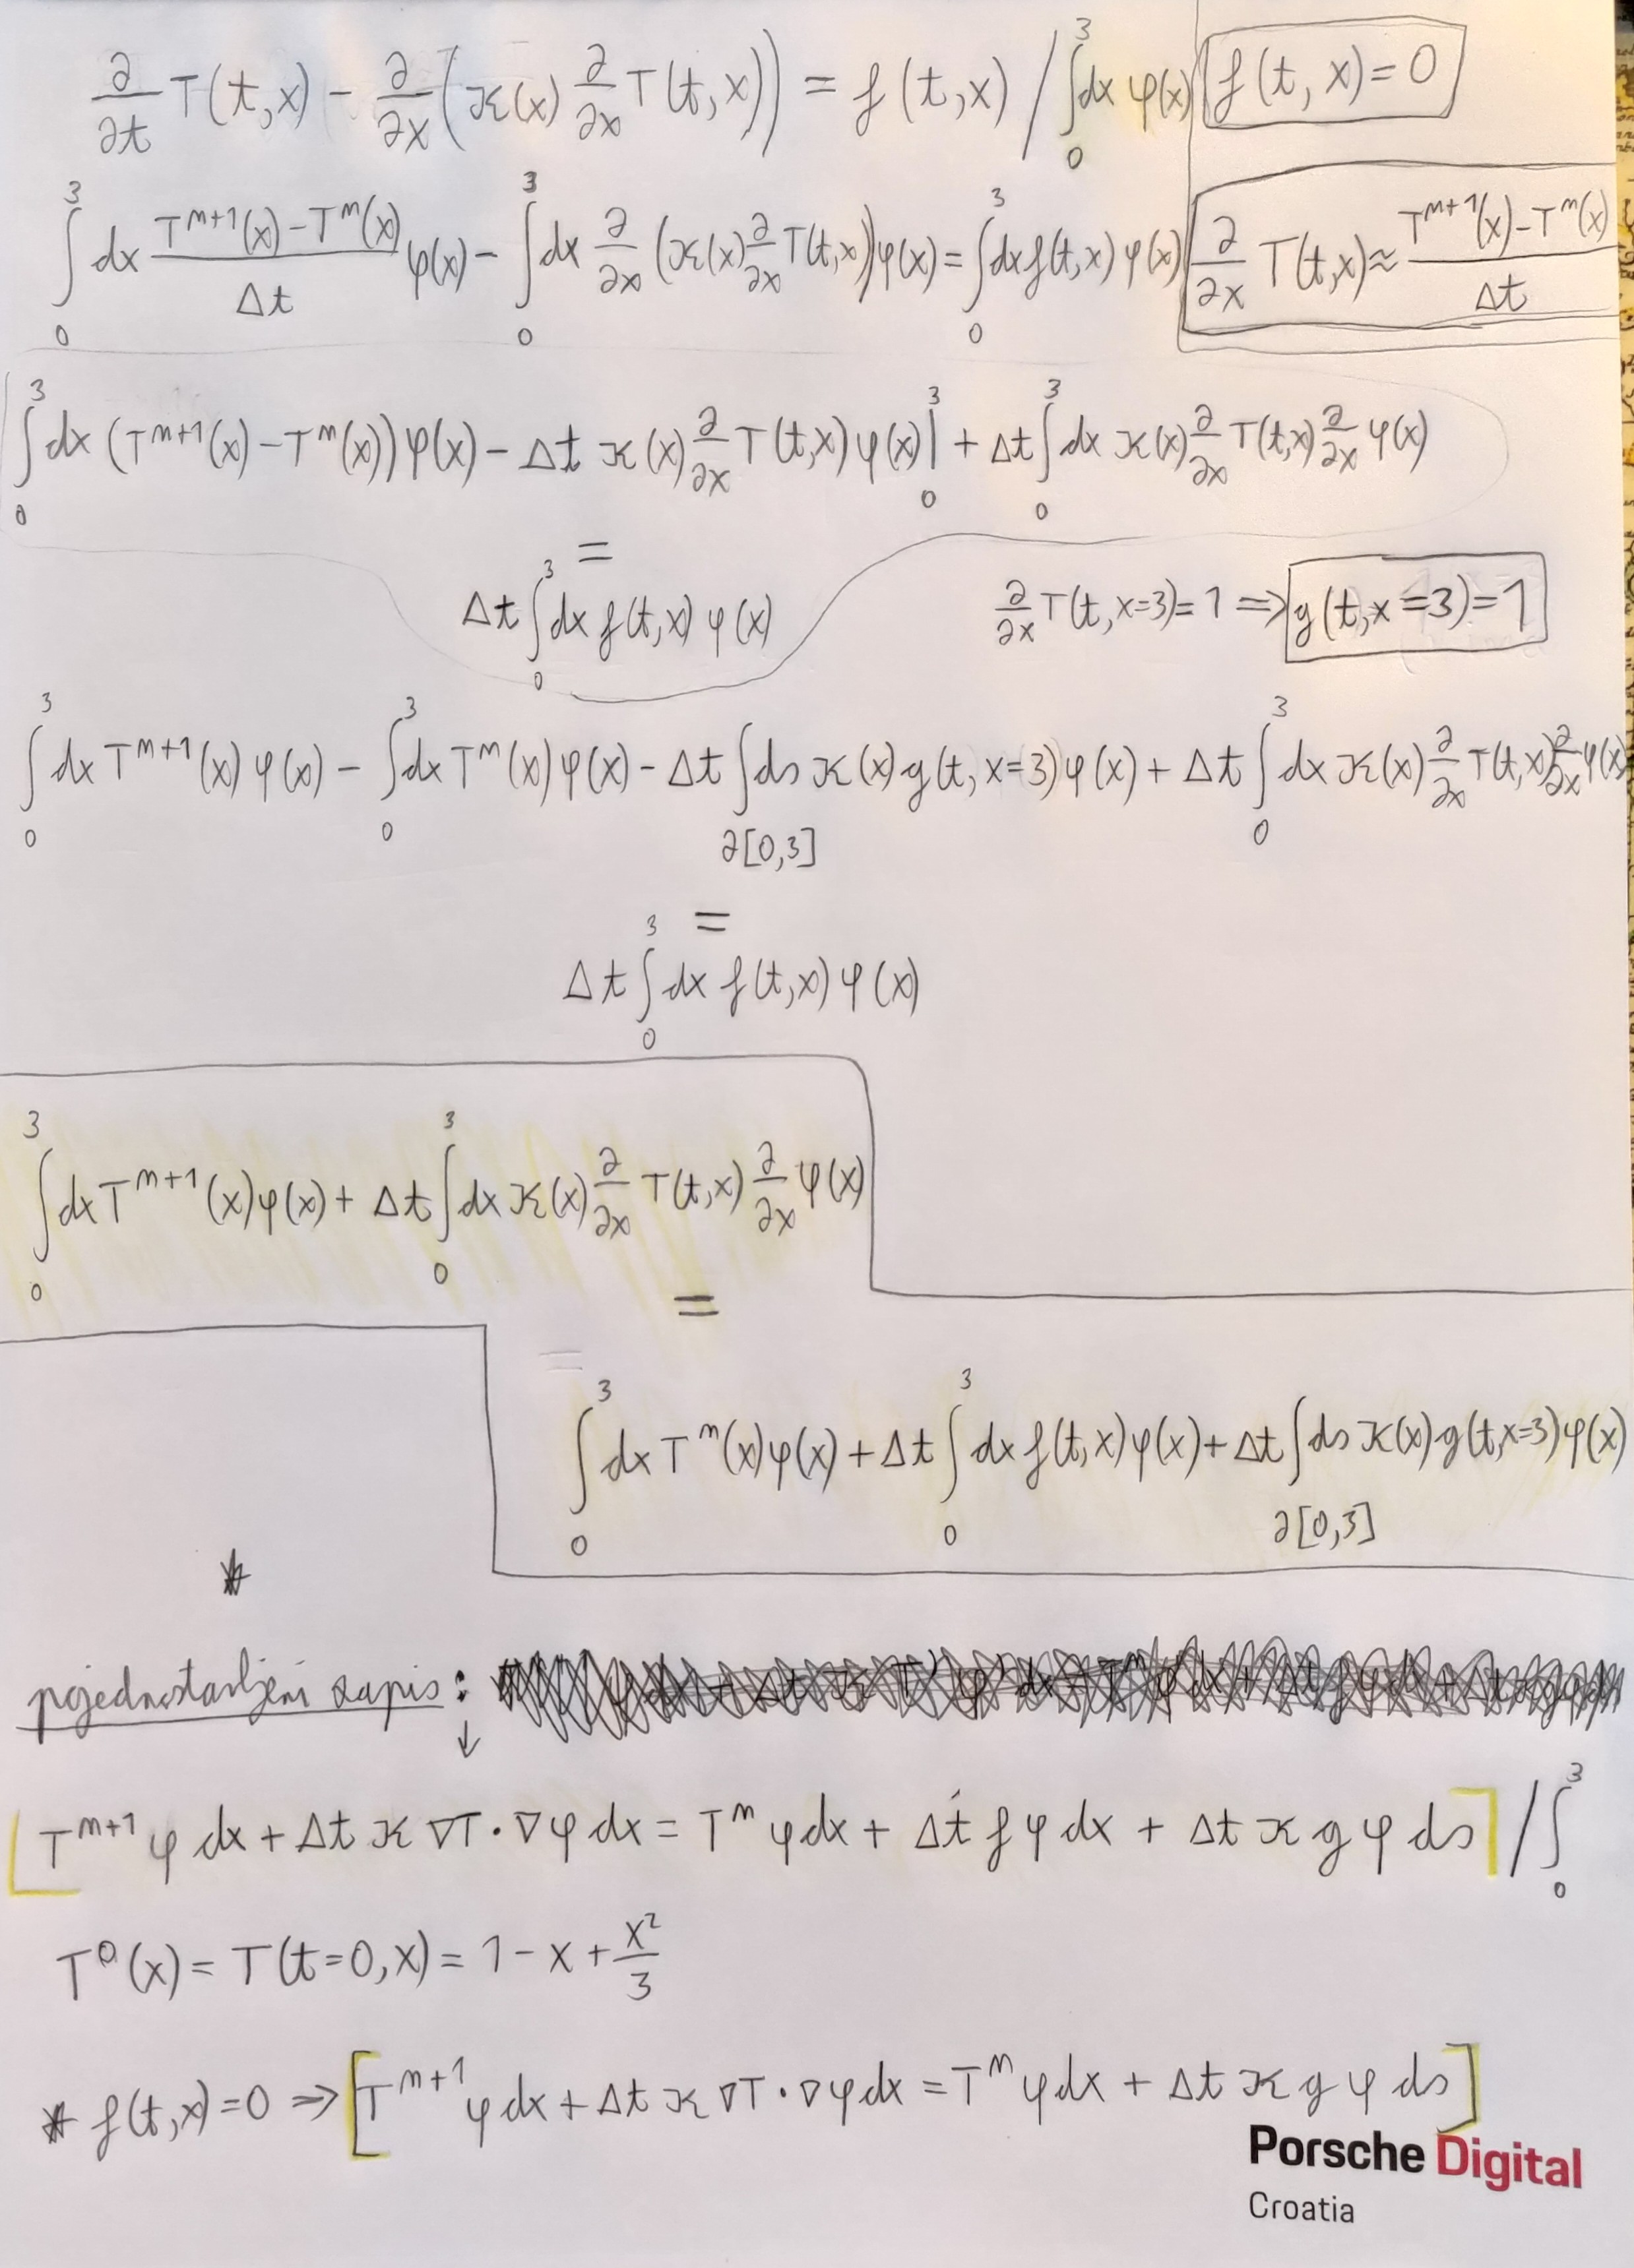 ∂/∂t T(t,x) - ∂/∂x (ϰ(x) ∂/∂x T(t,x)) = f(t,x) / ∫₀³ dx φ(x)
f(t,x)=0
∫₀³ dx (Tⁿ⁺¹(x)-Tⁿ(x))/Δt φ(x) - ∫₀³ dx ∂/∂x (ϰ(x) ∂/∂x T(t,x)) φ(x) = ∫₀³ dx f(t,x) φ(x)
∂/∂x T(t,x) ≈ (Tⁿ⁺¹(x)-Tⁿ(x))/Δt
∫₀³ dx (Tⁿ⁺¹(x)-Tⁿ(x)) φ(x) - Δt ϰ(x) ∂/∂x T(t,x) φ(x) |₀³ + Δt ∫₀³ dx ϰ(x) ∂/∂x T(t,x) ∂/∂x φ(x)
=
Δt ∫₀³ dx f(t,x) φ(x)
∂/∂x T(t,x=3)=1 ⇒ g(t,x=3)=1
∫₀³ dx Tⁿ⁺¹(x) φ(x) - ∫₀³ dx Tⁿ(x) φ(x) - Δt ∫ ds ϰ(x) g(t,x=3) φ(x) + Δt ∫₀³ dx ϰ(x) ∂/∂x T(t,x) ∂/∂x φ(x)
∂[0,3]
=
Δt ∫₀³ dx f(t,x) φ(x)
∫₀³ dx Tⁿ⁺¹(x) φ(x) + Δt ∫₀³ dx ϰ(x) ∂/∂x T(t,x) ∂/∂x φ(x)
=
∫₀³ dx Tⁿ(x) φ(x) + Δt ∫₀³ dx f(t,x) φ(x) + Δt ∫ ds ϰ(x) g(t,x=3) φ(x)
∂[0,3]
*
pojednostavljeni zapis: ↓
[Tⁿ⁺¹ φ dx + Δt ϰ ∇T · ∇φ dx = Tⁿ φ dx + Δt f φ dx + Δt ϰ g φ ds] / ∫₀³
T⁰(x) = T(t=0,x) = 1 - x + x²/3
* f(t,x)=0 ⇒ [Tⁿ⁺¹ φ dx + Δt ϰ ∇T · ∇φ dx = Tⁿ φ dx + Δt ϰ g φ ds]
Porsche Digital
Croatia